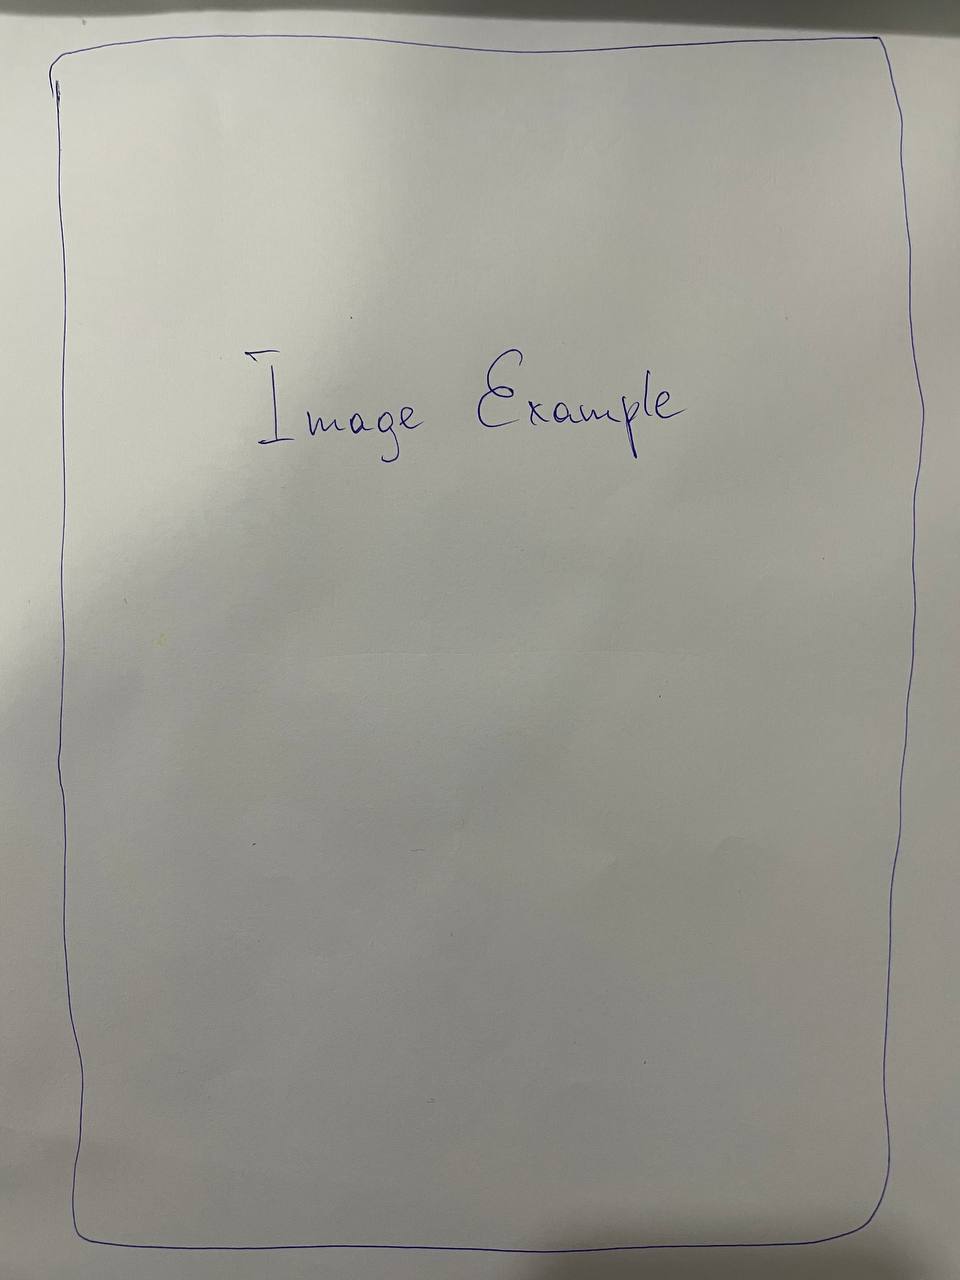 Image Example